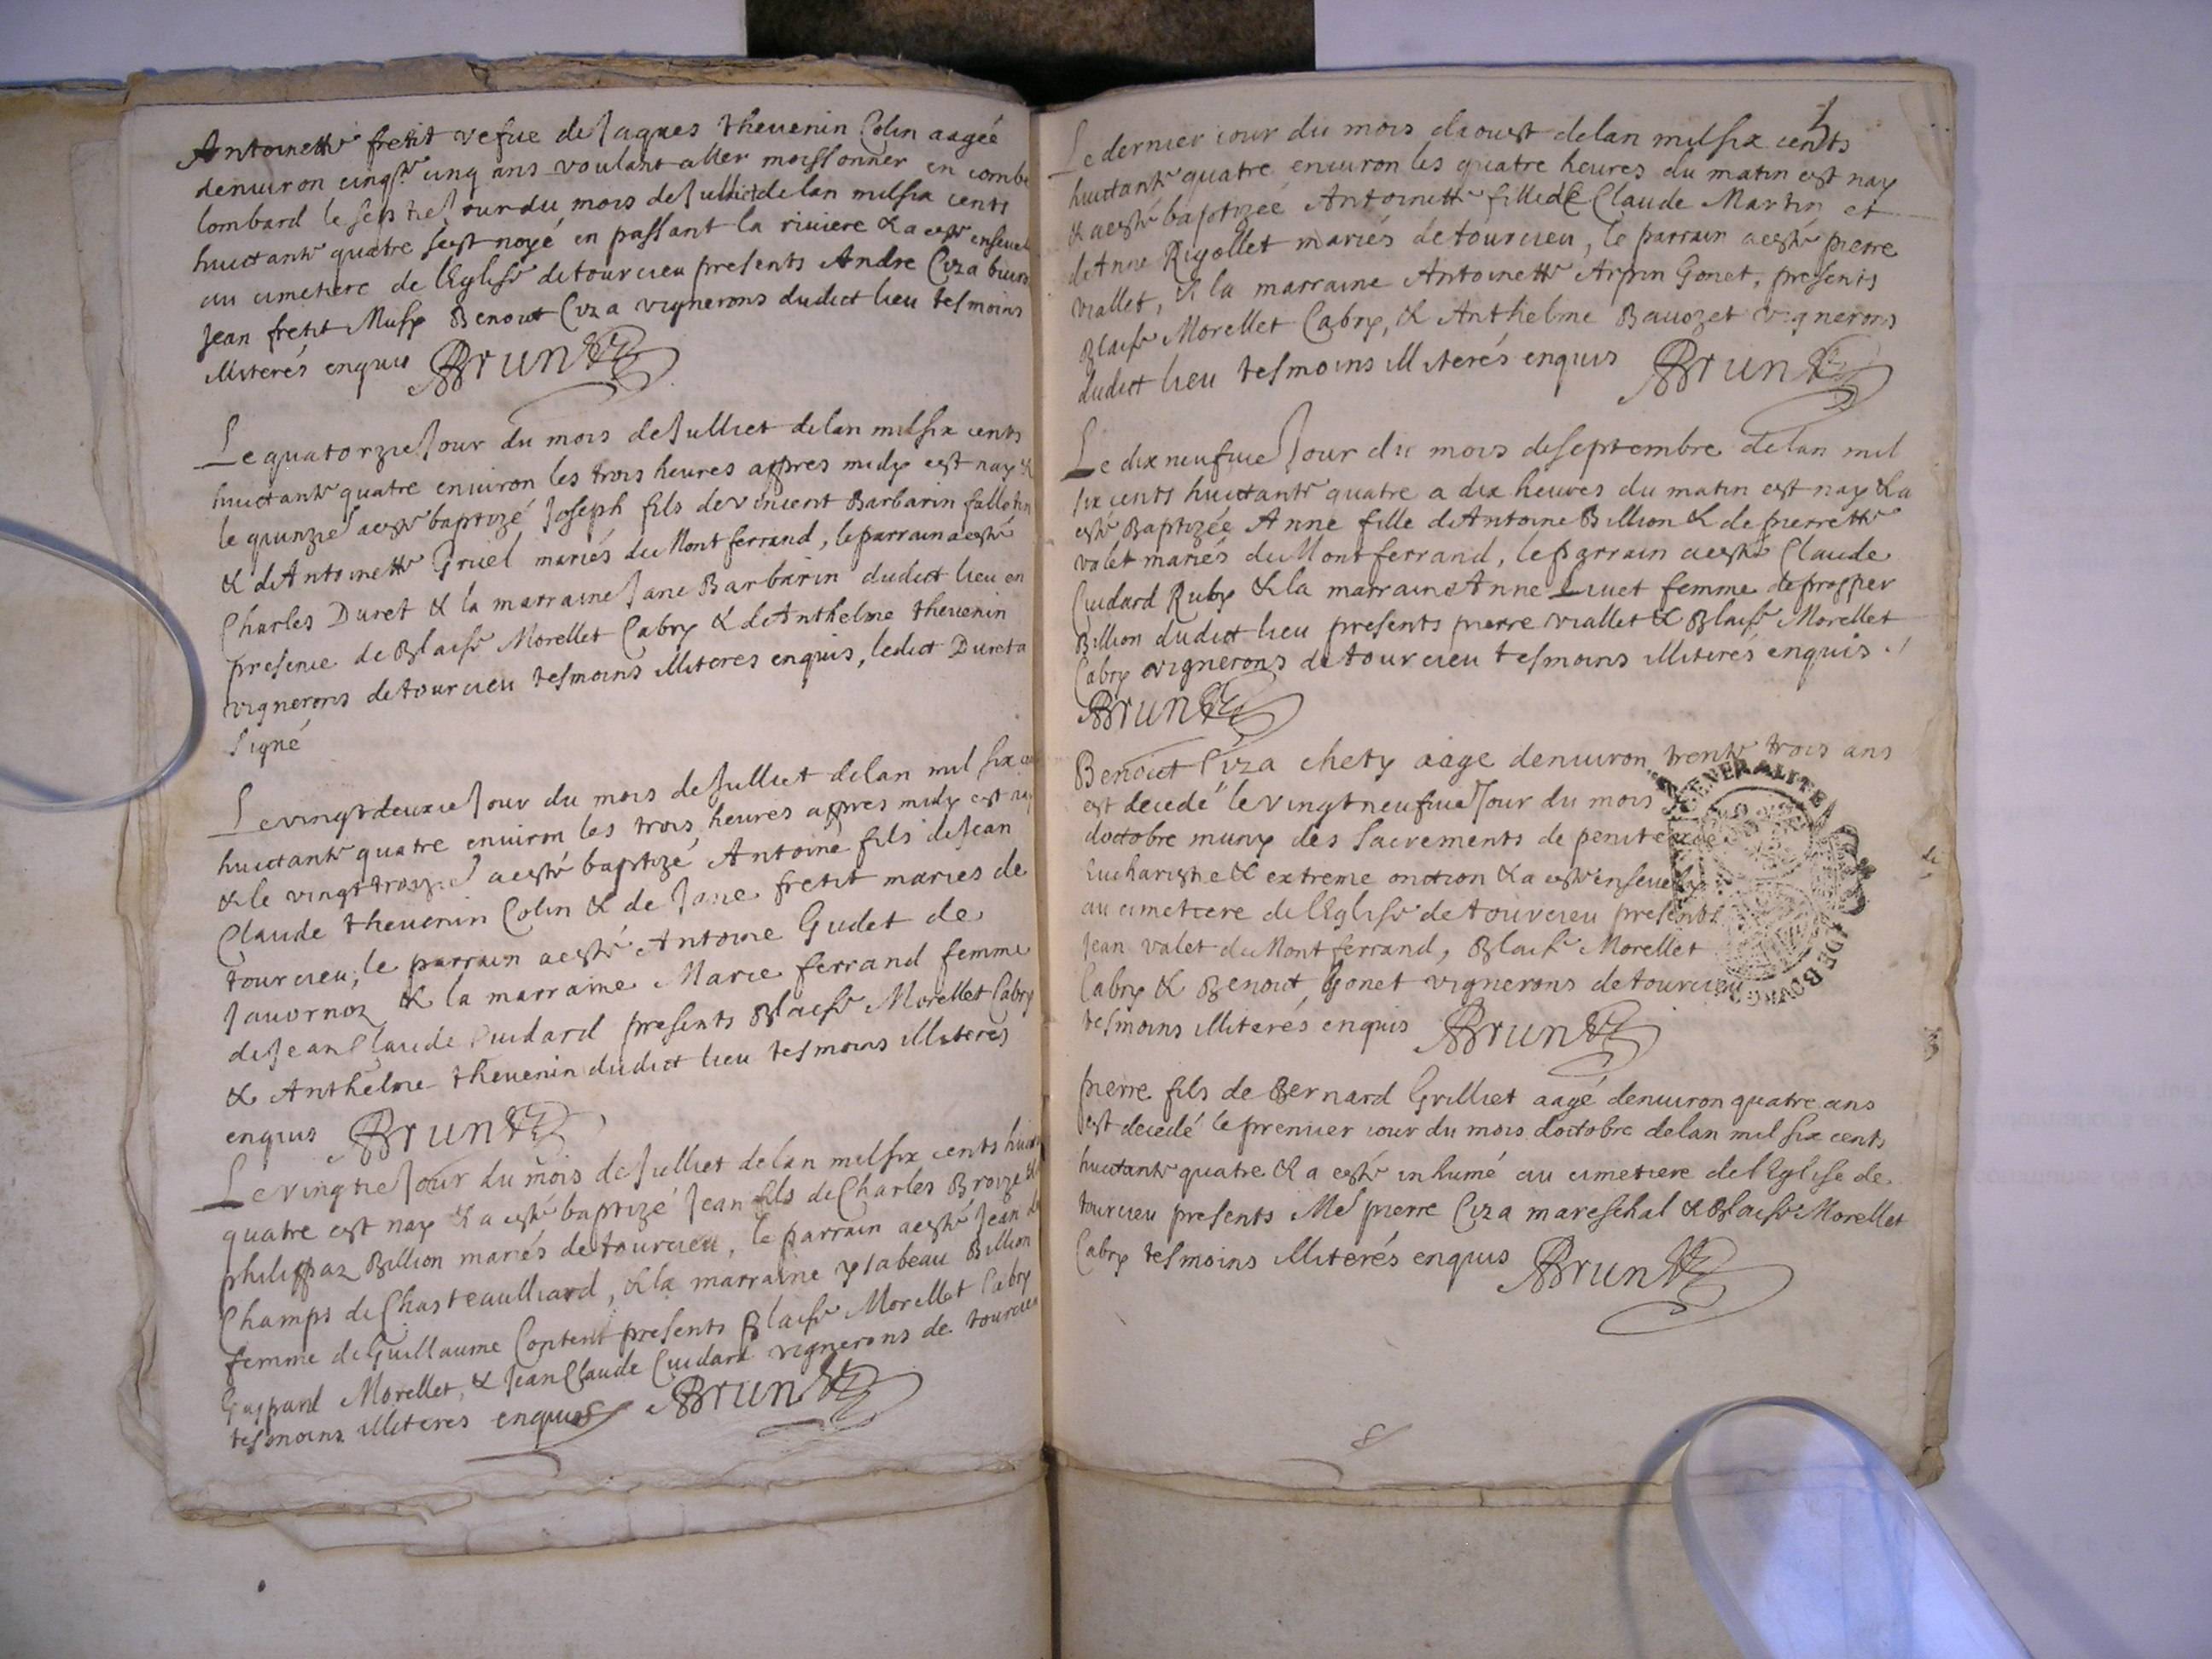 Antoinette fretit vefue de Jaques thevenin Colin aagée
denuiron cinq.te cinq ans voulant aller moissonner en combe
lombard le septie Jour du mois de Julliet delan milsix cents
huictante quatre sest noyé en passant la riviere & a este enseuel
au cimetiere de lEglise de tourcieu presents Andre Ciza
Jean fretit Musy Benoict Ciza vignerons dudict lieu tesmoins
illiterés enquis Brun
Le quatorzie Jour du mois de Julliet delan milsix cents
huictante quatre enuiron les trois heures appres midy est nay &
le quinzie a este baptizé Joseph fils de vincent Barbarin fallotin
& d'Antoinette Griel mariés du Montferrand, le parrain a esté
Charles Duret & la marraine Jane Barbarin dudict lieu en
presence de Blaise Morellet Cabry & de Anthelme thevenin
vignerons de tourcieu tesmoins illiteres enquis, ledict Duret a
signé
Le vingtdeuxie Jour du mois de Julliet delan mil six
huictante quatre enuiron les trois heures appres midy est nay
& le vingt trozie a esté baptizé Antoine fils de Jean
Claude thevenin Colin & de Jane fretit maries de
tourcieu, le parrain a esté Antoine Gudet de
Jauornoz & la marraine Marie ferrand femme
de Jean Claude Cuidard presents Blaise Morellet Cabry
& Anthelme thevenin dudict lieu tesmoins illiteres
enquis Brun
Le vingtie Jour du mois de Julliet delan milsix cents huict
quatre est nay & a esté baptizé Jean fils de Charles Broize &
philippaz Billion mariés de tourcieu, le parrain a esté Jean de
Champs de Chasteaulliard, & la marraine ysabeau Billion
femme de Guillaume Content presents Blaise Morellet Cabry
Gaspard Morellet, & Jean Claude Cuidard vignerons de tourcieu
tesmoins illiteres enquis Brun
Le dernier iour du mois daoust delan milsix cents
huictante quatre enuiron les quatre heures du matin est nay
& a esté baptizée Antoinette fille de Claude Martin et
de Anne Rigollet mariés de tourcieu, le parrain a esté pierre
viallet, & la marraine Antoinette Arpin Gonet, presents
Blaise Morellet Cabry, & Anthelme Bauozet vignerons
dudict lieu tesmoins illiterés enquis Brun
Le dix neufuie Jour du mois de septembre delan mil
six cents huictante quatre a dix heures du matin est nay & a
esté Baptizée Anne fille de Antoine Billion & de pierrette
valet mariés du Montferrand, le parrain a esté Claude
Cuidard Ruby & la marraine Anne Liuet femme de prosper
Billion dudict lieu presents pierre viallet & Blaise Morellet
Cabry vignerons de tourcieu tesmoins illiterés enquis
Brun
Benoict Ciza chety aage denuiron trente trois ans
est decedé le vingtneufuie Jour du mois
doctobre muny des Sacrements de penitence
Eucharistie & extreme onction & a esté enseuely
au cimetiere de lEglise de tourcieu presents
Jean valet du Montferrand, Blaise Morellet
Cabry & Benoict Gonet vignerons de tourcieu
tesmoins illiterés enquis Brun
pierre fils de Bernard Grilliet aagé denuiron quatre ans
est decedé le premier iour du mois doctobre delan mil six cents
huictante quatre & a esté inhumé au cimetiere de lEglise de
tourcieu presents Me pierre Ciza mareschal & Blaise Morellet
Cabry tesmoins illiterés enquis Brun
GENERALITE DE BOURGO